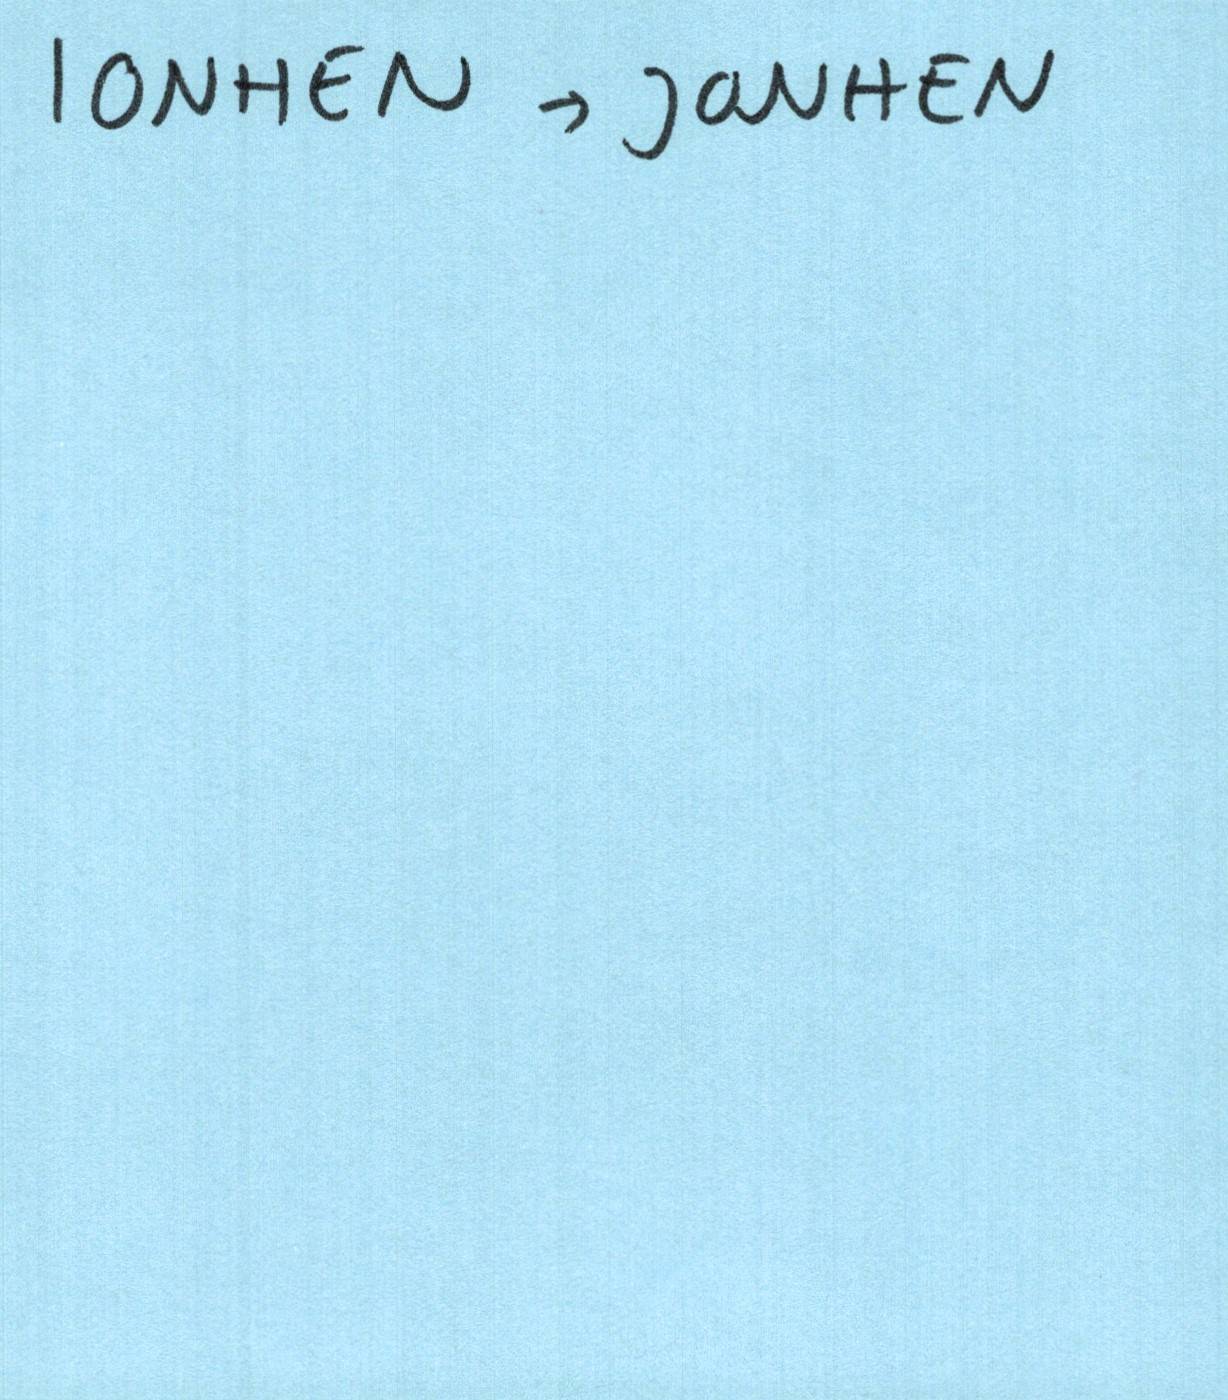 IONHEN → JaNHEN